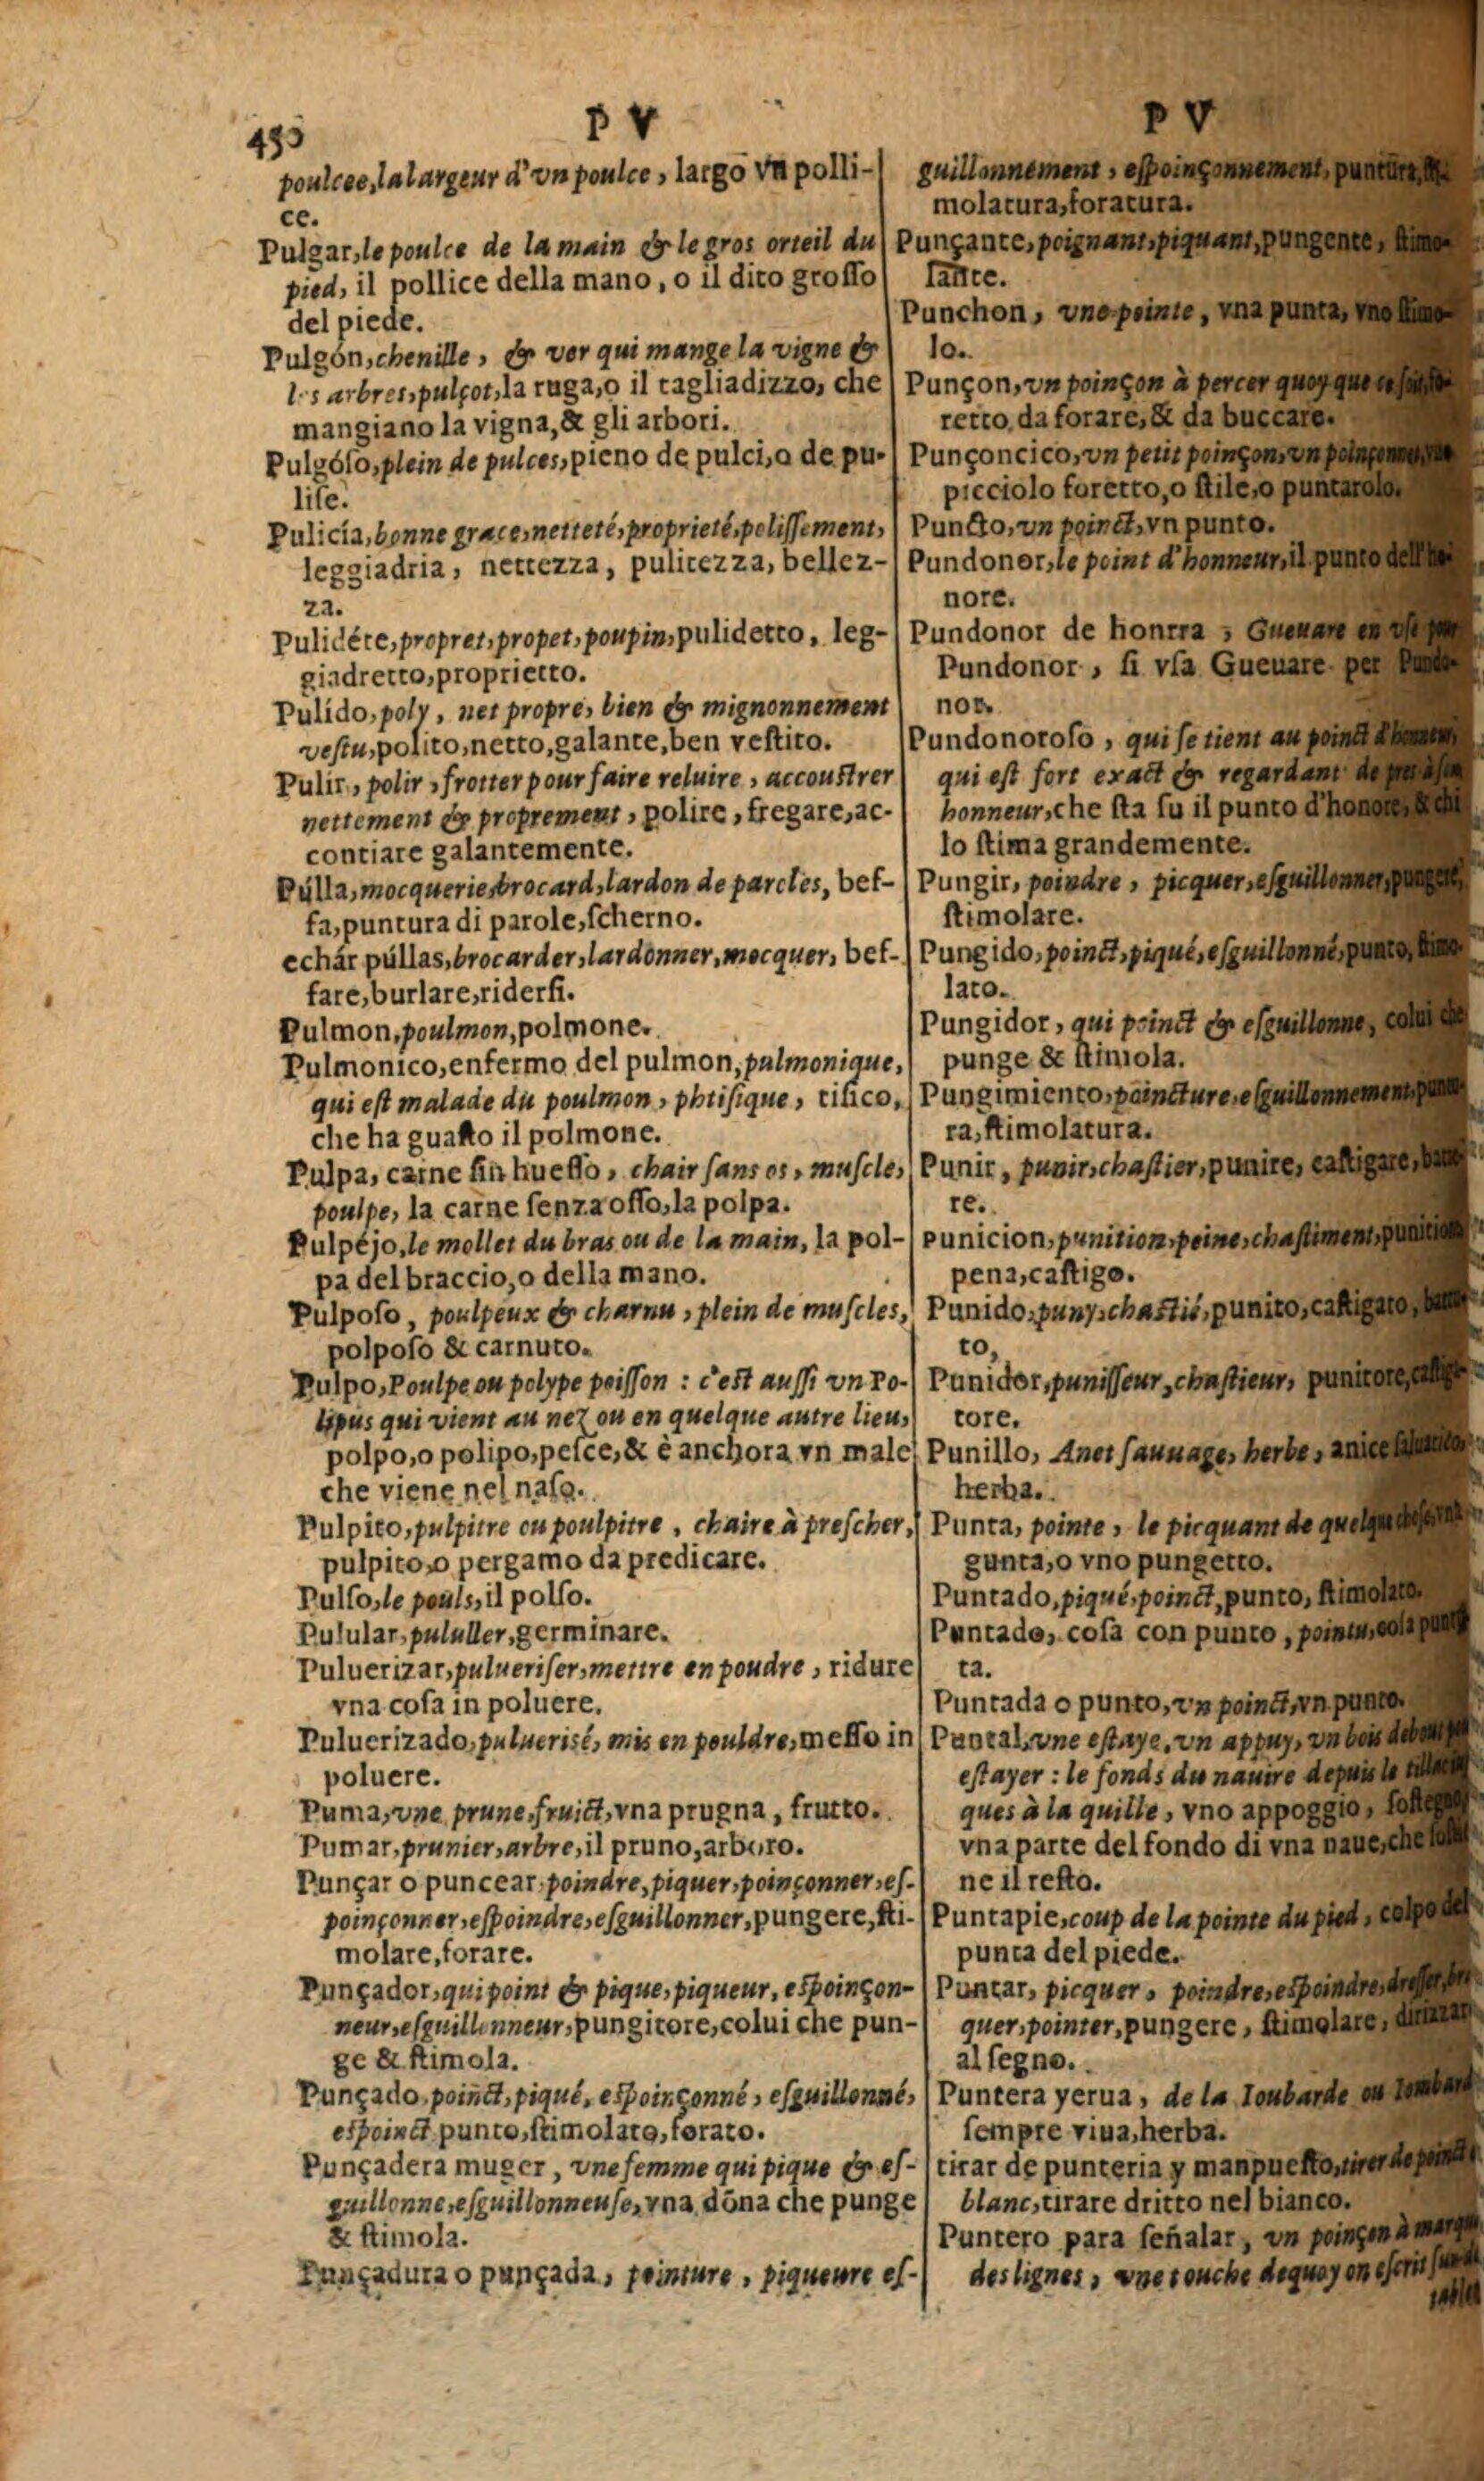 450
P V
P V
poulcee, la largeur d'vn poulce, largo vn polli-
ce.
Pulgar, le poulce de la main & le gros orteil du
pied, il pollice della mano, o il dito groſſo
del piede.
Pulgón, chenille, & ver qui mange la vigne &
les arbres, pulçot, la ruga, o il tagliadizzo, che
mangiano la vigna, & gli arbori.
Pulgóſo, plein de pulces, pieno de pulci, o de pu-
liſe.
Pulicía, bonne grace, netteté, proprieté, poliſſement,
leggiadria, nettezza, pulitezza, bellez-
za.
Pulidéte, propret, propet, poupin, pulidetto, leg-
giadretto, proprietto.
Pulído, poly, net propre, bien & mignonnement
veſtu, polito, netto, galante, ben veſtito.
Pulir, polir, frotter pour faire reluire, accouſtrer
nettement & proprement, polire, fregare, ac-
contiare galantemente.
Púlla, mocquerie, brocard, lardon de paroles, bef-
fa, puntura di parole, ſcherno.
echár púllas, brocarder, lardonner, mocquer, bef-
fare, burlare, riderſi.
Pulmon, poulmon, polmone.
Pulmonico, enfermo del pulmon, pulmonique,
qui eſt malade du poulmon, phtiſique, tiſico,
che ha guaſto il polmone.
Pulpa, carne ſin hueſſo, chair ſans os, muſcle,
poulpe, la carne ſenza oſſo, la polpa.
Pulpéjo, le mollet du bras ou de la main, la pol-
pa del braccio, o della mano.
Pulpoſo, poulpeux & charnu, plein de muſcles,
polpoſo & carnuto.
Pulpo, Poulpe ou polype poiſſon : c'eſt auſſi vn Po-
lipus qui vient au nez ou en quelque autre lieu,
polpo, o polipo, peſce, & è anchora vn male
che viene nel naſo.
Pulpito, pulpitre ou poulpitre, chaire à preſcher,
pulpito, o pergamo da predicare.
Pulſo, le pouls, il polſo.
Pulular, pululler, germinare.
Puluerizar, pulueriſer, mettre en poudre, ridure
vna coſa in poluere.
Puluerizado, pulueriſé, mis en pouldre, meſſo in
poluere.
Puma, vne prune, fruict, vna prugna, frutto.
Pumar, prunier, arbre, il pruno, arboro.
Punçar o puncear, poindre, piquer, poinçonner, eſ-
poinçonner, eſpoindre, eſguillonner, pungere, ſti-
molare, forare.
Punçador, qui point & pique, piqueur, eſpoinçon-
neur, eſguillonneur, pungitore, colui che pun-
ge & ſtimola.
Punçado, poinct, piqué, eſpoinçonné, eſguillonné,
eſpoinct punto, ſtimolato, forato.
Punçadera muger, vne femme qui pique & eſ-
guillonne, eſguillonneuſe, vna dōna che punge
& ſtimola.
Punçadura o punçada, pointure, piqueure eſ-
guillonnement, eſpoinçonnement, puntura,
molatura, foratura.
Punçante, poignant, piquant, pungente, ſtimo-
lante.
Punchon, vne pointe, vna punta, vno ſtimo-
lo.
Punçon, vn poinçon à percer quoy que ce ſoit, fo-
retto, da forare, & da buccare.
Punçoncico, vn petit poinçon, vn poinçonnet, vno
picciolo foretto, o ſtile, o puntarolo.
Puncto, vn poinct, vn punto.
Pundonor, le point d'honneur, il punto dell'ho-
nore.
Pundonor de honrra, Gueuare en vſe pour
Pundonor, ſi vſa Gueuare per Pundo-
nor.
Pundonoroſo, qui ſe tient au poinct d'honneur,
qui eſt fort exact & regardant de pres à ſon
honneur, che ſta ſu il punto d'honore, & chi
lo ſtima grandemente.
Pungir, poindre, picquer, eſguillonner, pungere,
ſtimolare.
Pungido, poinct, piqué, eſguillonné, punto, ſtimo-
lato.
Pungidor, qui poinct & eſguillonne, colui che
punge & ſtimola.
Pungimiento, poincture, eſguillonnement, puntu-
ra, ſtimolatura.
Punir, punir, chaſtier, punire, caſtigare,
re.
punicion, punition, peine, chaſtiment, punitione
pena, caſtigo.
Punido, puny, chaſtié, punito, caſtigato,
to,
Punidor, puniſſeur, chaſtieur, punitore, caſtiga-
tore.
Punillo, Anet ſauuage, herbe, anice ſaluatico,
herba.
Punta, pointe, le picquant de quelque choſe, vna
gunta, o vno pungetto.
Puntado, piqué, poinct, punto, ſtimolato.
Puntado, coſa con punto, pointu, coſa punta-
ta.
Puntada o punto, vn poinct, vn punto.
Puntal, vne eſtaye, vn appuy, vn bois debout pour
eſtayer : le fonds du nauire depuis le tillac iuſ-
ques à la quille, vno appoggio, ſoſtegno,
vna parte del fondo di vna naue, che ſoſtie-
ne il reſto.
Puntapie, coup de la pointe du pied, colpo del
punta del piede.
Puntar, picquer, poindre, eſpoindre, dreſſer, bra-
quer, pointer, pungere, ſtimolare, dirizzar
al ſegno.
Puntera yerua, de la Ioubarde ou Iombard
ſempre viua, herba.
tirar de punteria y manpueſto, tirer de poincte
blanc, tirare dritto nel bianco.
Puntero para ſeñalar, vn poinçon à marquer
des lignes, vne touche dequoy on eſcrit
tables